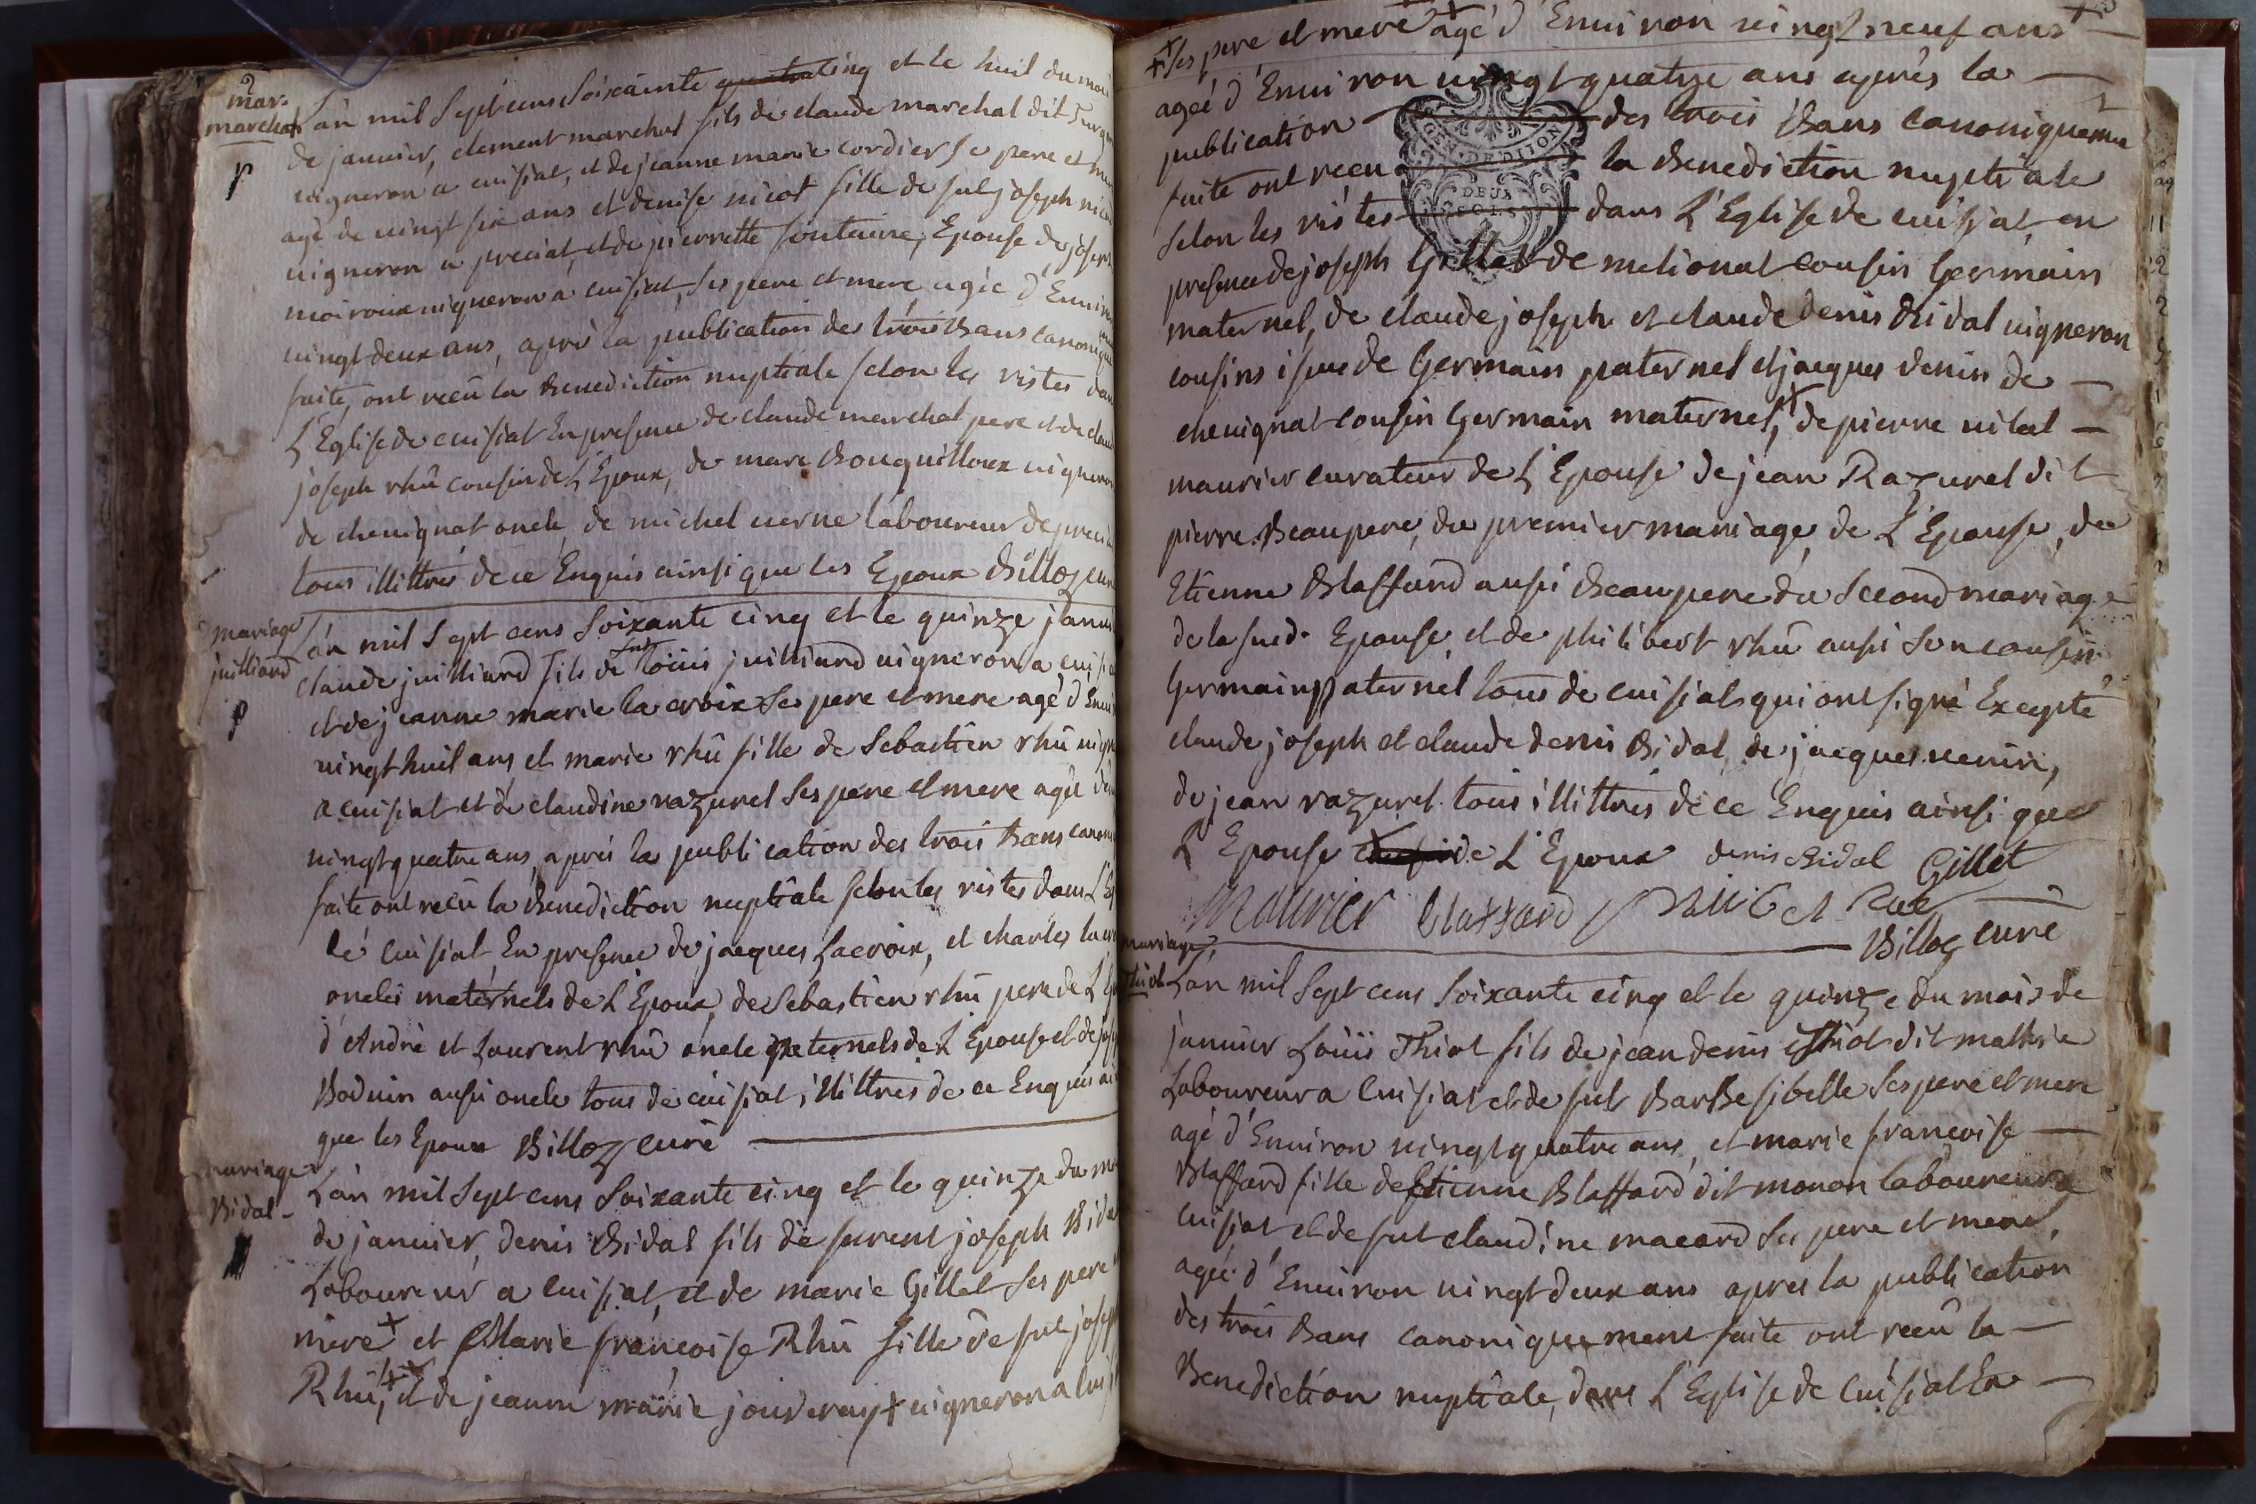 2
mar.
marchal
L'an mil sept cens soixante quatre cinq et le huit du mois
de januier, clement marchal fils de claude marchal dit
uigneron a cuisiat, et de jeanne marie cordier se pere et mere
agé de uingt six ans et denise nicot fille de fut joseph nicot
uigneron a preciat, et de pierrette fontaine, Epouse de joseph
moiroux uigneron a cuisiat, ses pere et mere agée d'Enuiron
uingt deux ans, aprés la publication des trois Bans canonique
faite, ont recû la Benediction nuptiale selon les ristes dans
L'Eglise de cuisiat En presence de claude marchal pere et de claude
joseph rhû cousin de L'Epoux, de marc Bouquilloux uigneron
de cheuignat oncle, de michel uerne laboureur de preciat
tous illittrés de ce Enquis ainsi que les Epoux Billoz curé
mariage
juilliard
L'an mil sept cens soixante cinq et le quinze januier
claude juilliard fils de fut Loüis juilliard uigneron a cuisiat
et de jeanne marie la croix ses pere et mere agé d'Enuiron
uingt huit ans et marie rhû fille de Sebastien rhû uigneron
a cuisiat et de claudine razurel ses pere et mere agée d'en
uingt quatre ans, aprés la publication des trois Bans canoni
faite ont recû la Benediction nuptiale selon les ristes dans L'Eg
de cuisiat, En presence de jacques Lacroix, et charles lacroix
oncles maternels de L'Epoux, de Sebastien rhû pere de L'Ep
d'André et Laurent rhû oncle paternels de L'Epouse et de jos
Boduin aussi oncle tous de cuisiat, illittrés de ce Enquis ain
que les Epoux Billoz curé
mariage
Bidal
L'an mil sept cens soixante cinq et le quinze du mois
de januier, denis Bidal fils de furent joseph Bidal
Laboureur a cuisiat, et de marie Gillet ses pere et
mere + et Marie francoise Rhû fille de fut joseph
Rhû, + et de jeanne marie jouderay + uigneron a cuisiat
+ ses pere et mere + agé d'Enuiron uingt neuf ans +
agée d'Enuiron uingt quatre ans aprés la
publication des trois Bans canoniquement
faite ont recu la Benediction nuptiale
selon les ristes dans L'Eglise de cuisiat, en
GEN. DE DIJON
DEUX
SOLS
presence de joseph Gillet de melionat cousin Germain
maternel, de claude joseph et claude denis Bidal uigneron
cousins issus de Germain paternel et jacques uenin de
cheuignat cousin Germain maternel, + de pierre uital
maurier curateur de L'Epouse de jean Razurel dit
pierre Beaupere, du premier mariage, de L'Epouse, de
Etienne Blaffard aussi Beaupere du second mariage
de la sud. Epouse, et de philibert rhû aussi son cousin
Germain paternel tous de cuisiat qui ont signé Excepté
claude joseph et claude denis Bidal, de jacques uenin,
de jean razurel tous illittrés de ce Enquis ainsi que
L'Epouse de L'Epoux denis Bidal Gillet
Maurier Blaffard
Billoz curé
mariage
Thiot
L'an mil sept cens soixante cinq et le quinze du mois de
januier Loüis Thiot fils de jean denis Thiot dit mathie
Laboureur a cuisiat et de fut Barbe sibelle ses pere et mere
agé d'Enuiron uingt quatre ans, et marie francoise
Blaffard fille de Etienne Blaffard dit monon laboureur a
cuisiat et de fut claudine macard ses pere et mere,
agée d'Enuiron uingt deux ans apres la publication
des trois Bans canoniquement faite ont recû la
Benediction nuptiale, dans L'Eglise de cuisiat En